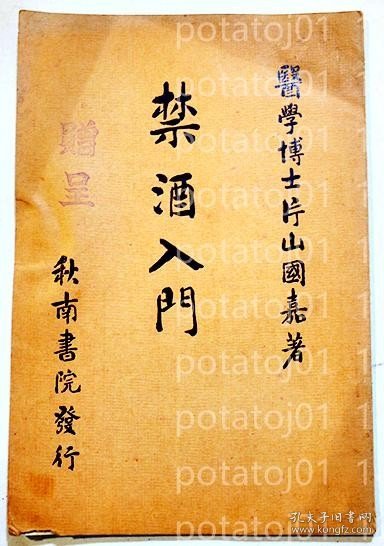 醫學博士片山國嘉著
禁酒入門
贈呈
秋南書院發行
potatoj01
potatoj01
potatoj01
potatoj01
potatoj01
potatoj01
potatoj01
potatoj01
孔夫子旧书网
www.kongfz.com